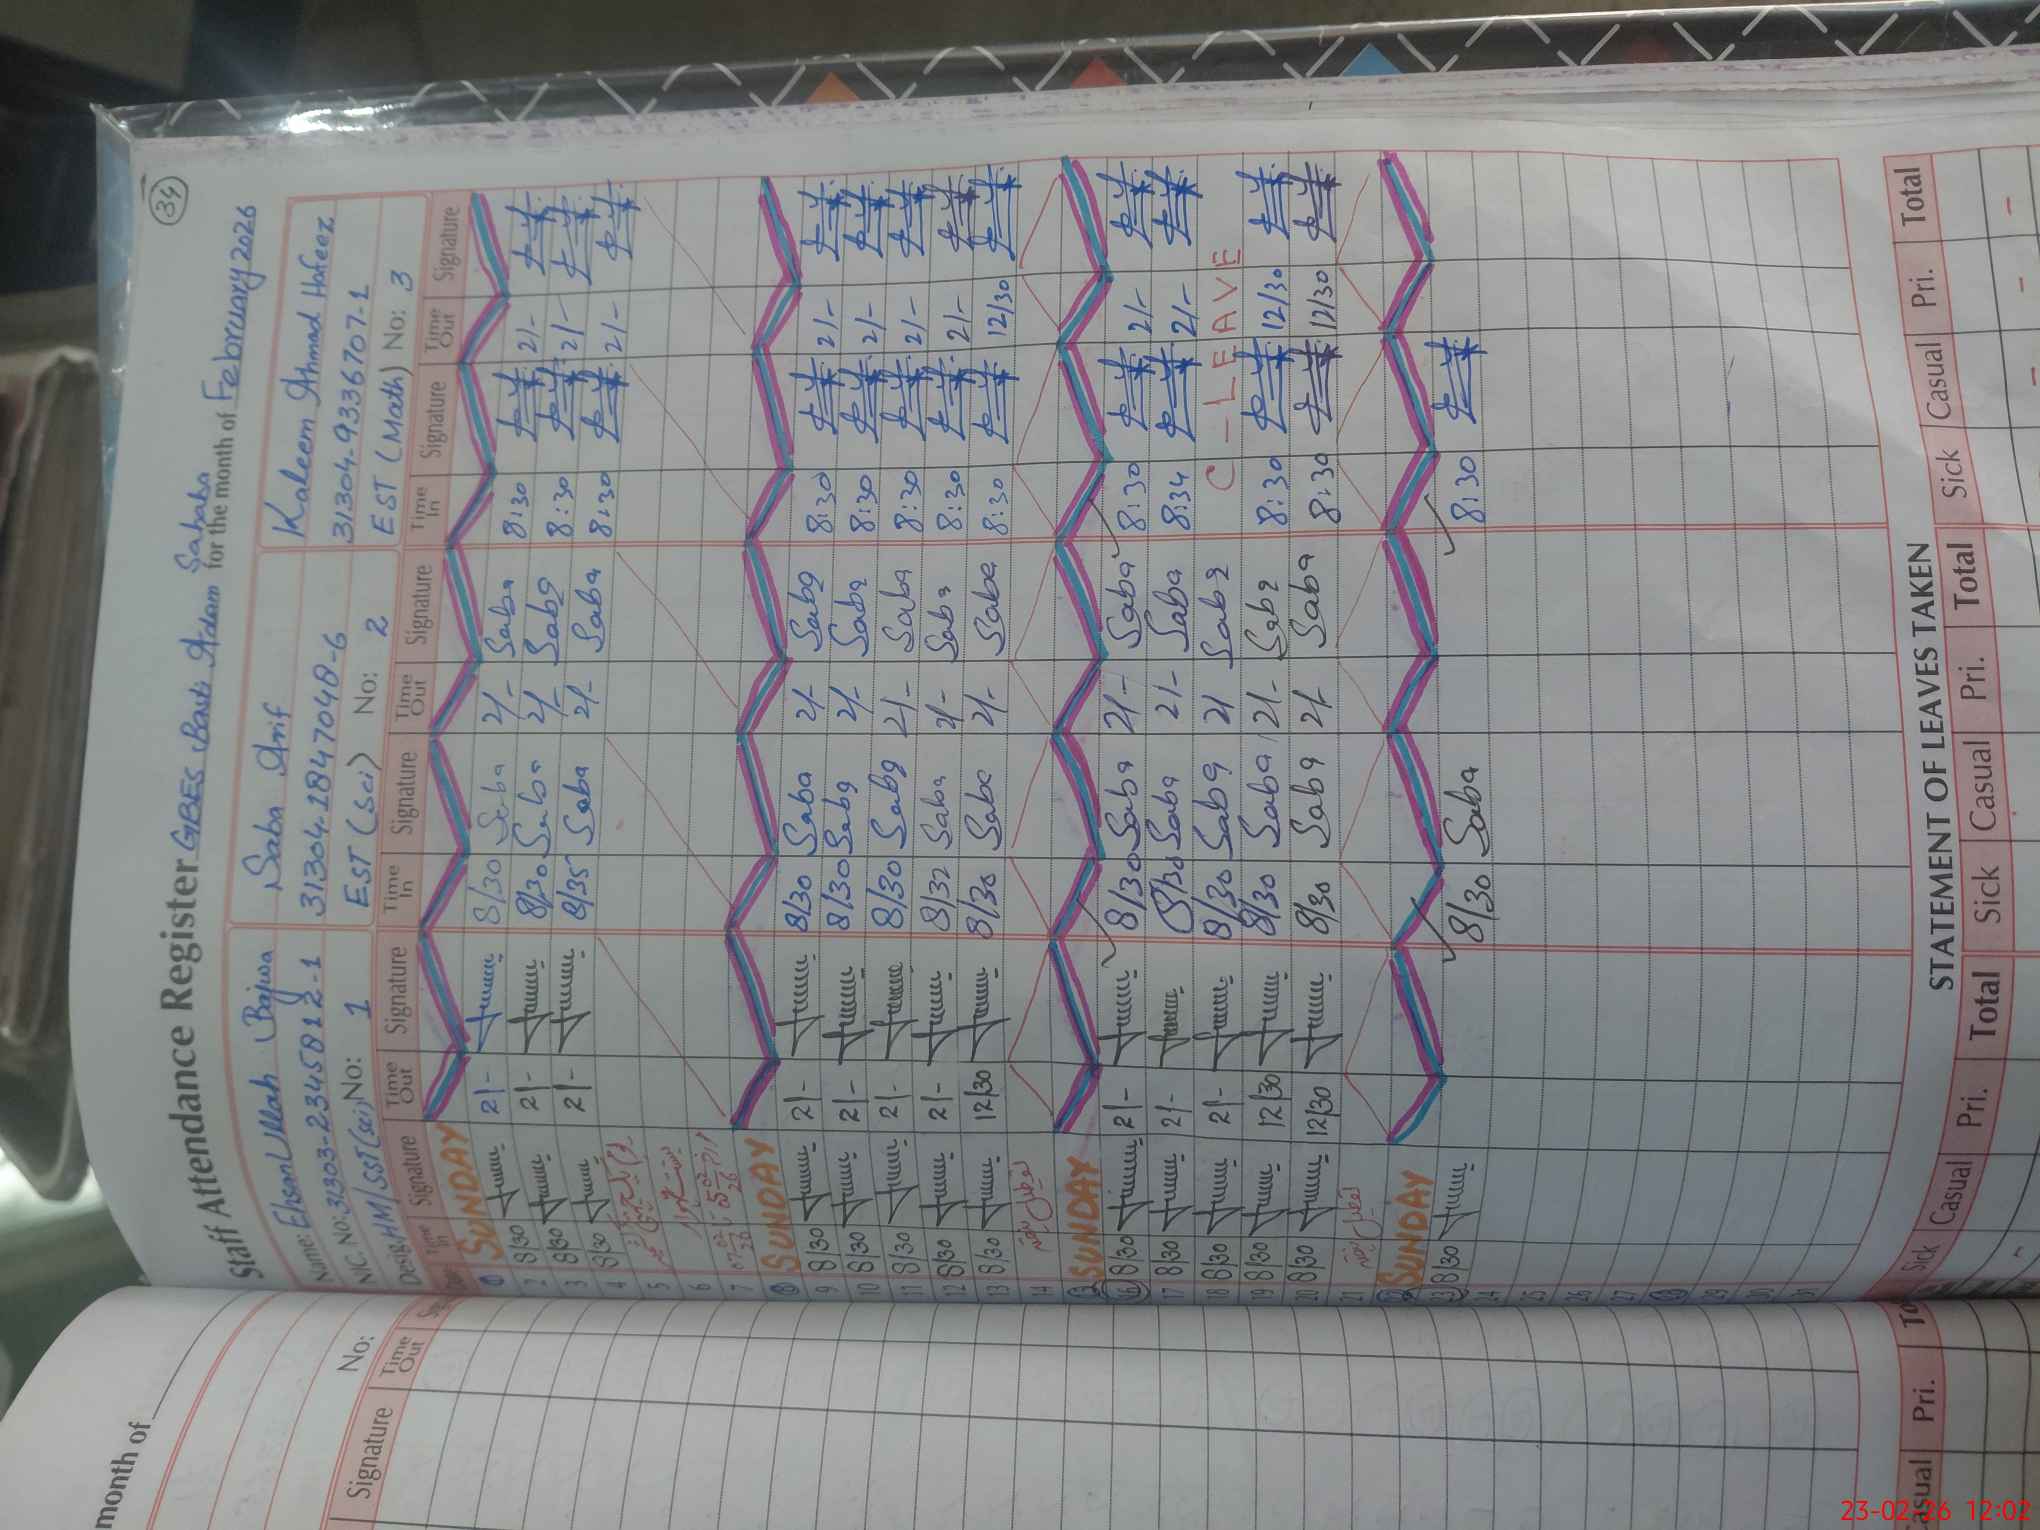 34
Staff Attendance Register GBES Basti Adam Sahaba for the month of February 2026
Name: Ehsan Ullah Bajwa Saba Arif Kaleem Ahmad Hafeez
NIC. No: 31303-2345812-1 31304-1847048-6 31304-9336707-1
Desig: HM/SST(sci) No: 1 EST (Sci) No: 2 EST (Math) No: 3
Time In Signature Time Out Signature Time In Signature Time Out Signature Time In Signature Time Out Signature
1 SUNDAY
2 8/30 2/- 8/30 Saba 2/- Saba 8:30 2/-
3 8/30 2/- 8/30 Saba 2/- Saba 8:30 2/-
4 8/30 2/- 8/35 Saba 2/- Saba 8:30 2/-
5
6
7
8 SUNDAY
9 8/30 2/- 8/30 Saba 2/- Saba 8:30 2/-
10 8/30 2/- 8/30 Saba 2/- Saba 8:30 2/-
11 8/30 2/- 8/30 Saba 2/- Saba 8:30 2/-
12 8/30 2/- 8/32 Saba 2/- Saba 8:30 2/-
13 8/30 12/30 8/30 Saba 2/- Saba 8:30 12/30
14 تعطیل
15 SUNDAY
16 8/30 2/- 8/30 Saba 2/- Saba 8:30 2/-
17 8/30 2/- 8/30 Saba 2/- Saba 8:34 2/-
18 8/30 2/- 8/30 Saba 2/ Saba C-LEAVE
19 8/30 12/30 8/30 Saba 12/- Saba 8:30 12/30
20 8/30 12/30 8/30 Saba 2/- Saba 8:30 12/30
21 تعطیل
22 SUNDAY
23 8/30 8/30 Saba 8:30
24
25
26
27
28
29
30
31
STATEMENT OF LEAVES TAKEN
Sick Casual Pri. Total Sick Casual Pri. Total Sick Casual Pri. Total
month of
No:
Signature Time Out
asual Pri.
23-02-26 12:02